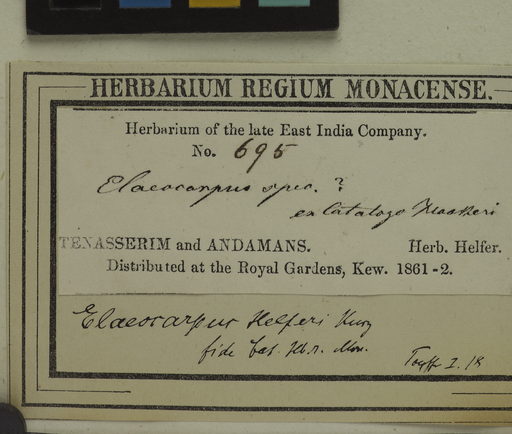 HERBARIUM REGIUM MONACENSE.
Herbarium of the late East India Company.
No. 695
Elaeocarpus spec. ?
ex Catalogo Hookeri
TENASSERIM and ANDAMANS. Herb. Helfer.
Distributed at the Royal Gardens, Kew. 1861-2.
Elaeocarpus Helferi Kurz
fide Cat. Hb. Mon.
I. 18